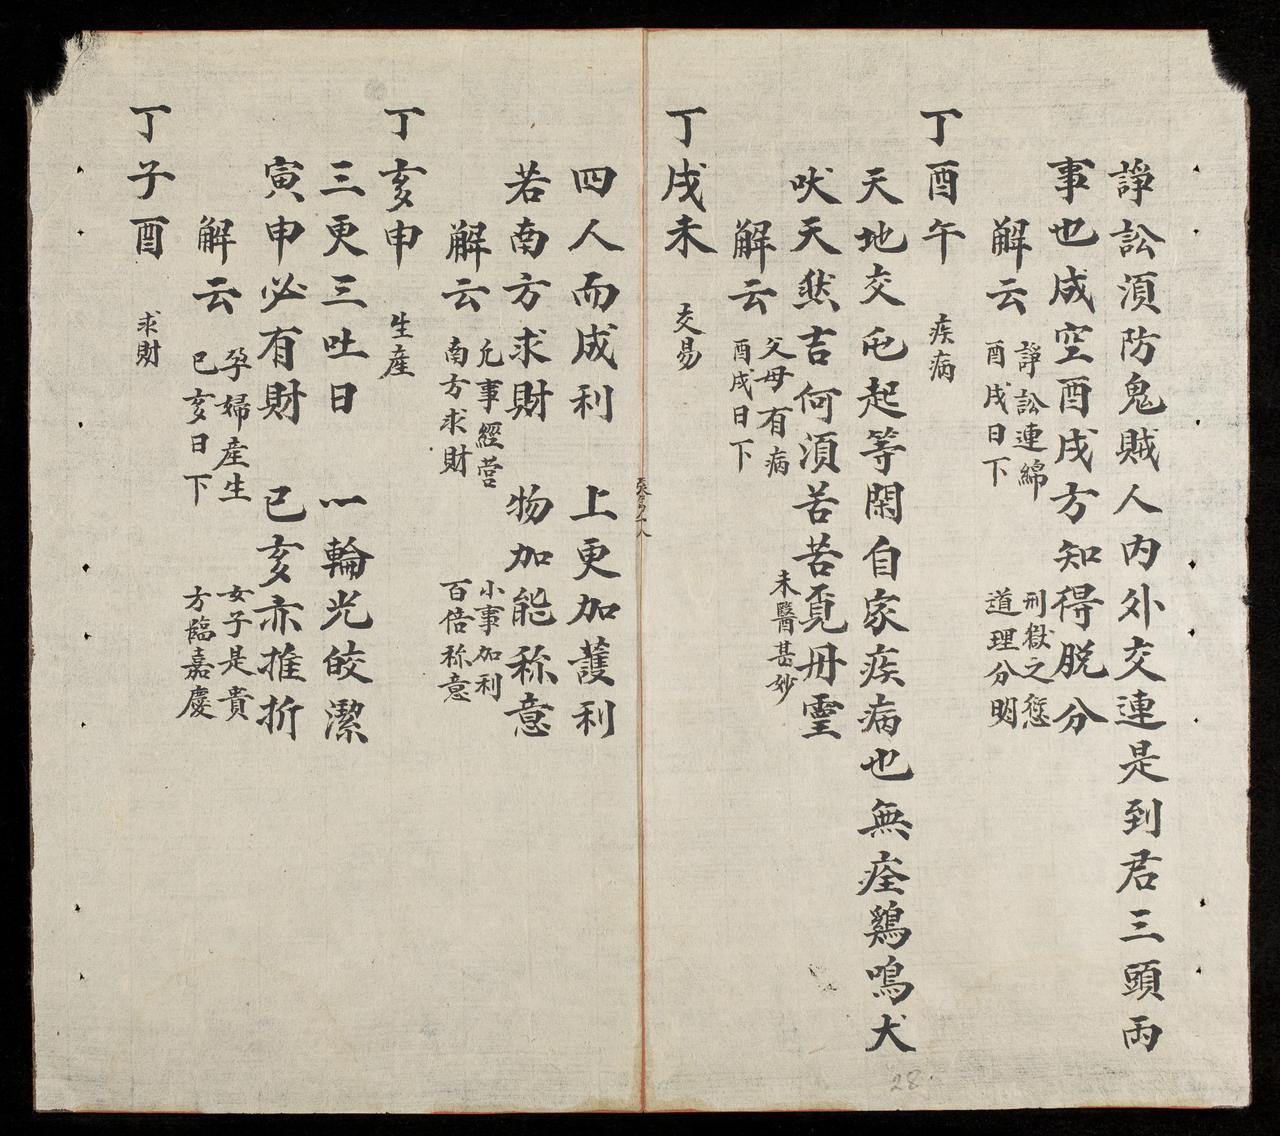 諍訟湏防鬼賊人内外交連是到君三頭両
事也成空酉戌方知得脱分
解云 諍訟連綿 刑獄之愆
酉戌日下 道理分明
丁酉午 疾病
天地交屯起等閑自家疾病也無痊鷄鳴犬
吠天然吉何湏苦苦覔丹霊
解云 父母有病 未醫甚妙
酉戌日下
丁戌未 交易
四人而成利 上更加護利
若南方求財 物加能称意
解云 凢事經营 小事加利
南方求財 百倍称意
丁亥申 生産
三更三吐日 一輪光皎潔
寅申必有財 已亥亦推折
解云 孕婦産生 女子是貴
已亥日下 方臨嘉慶
丁子酉 求財
28